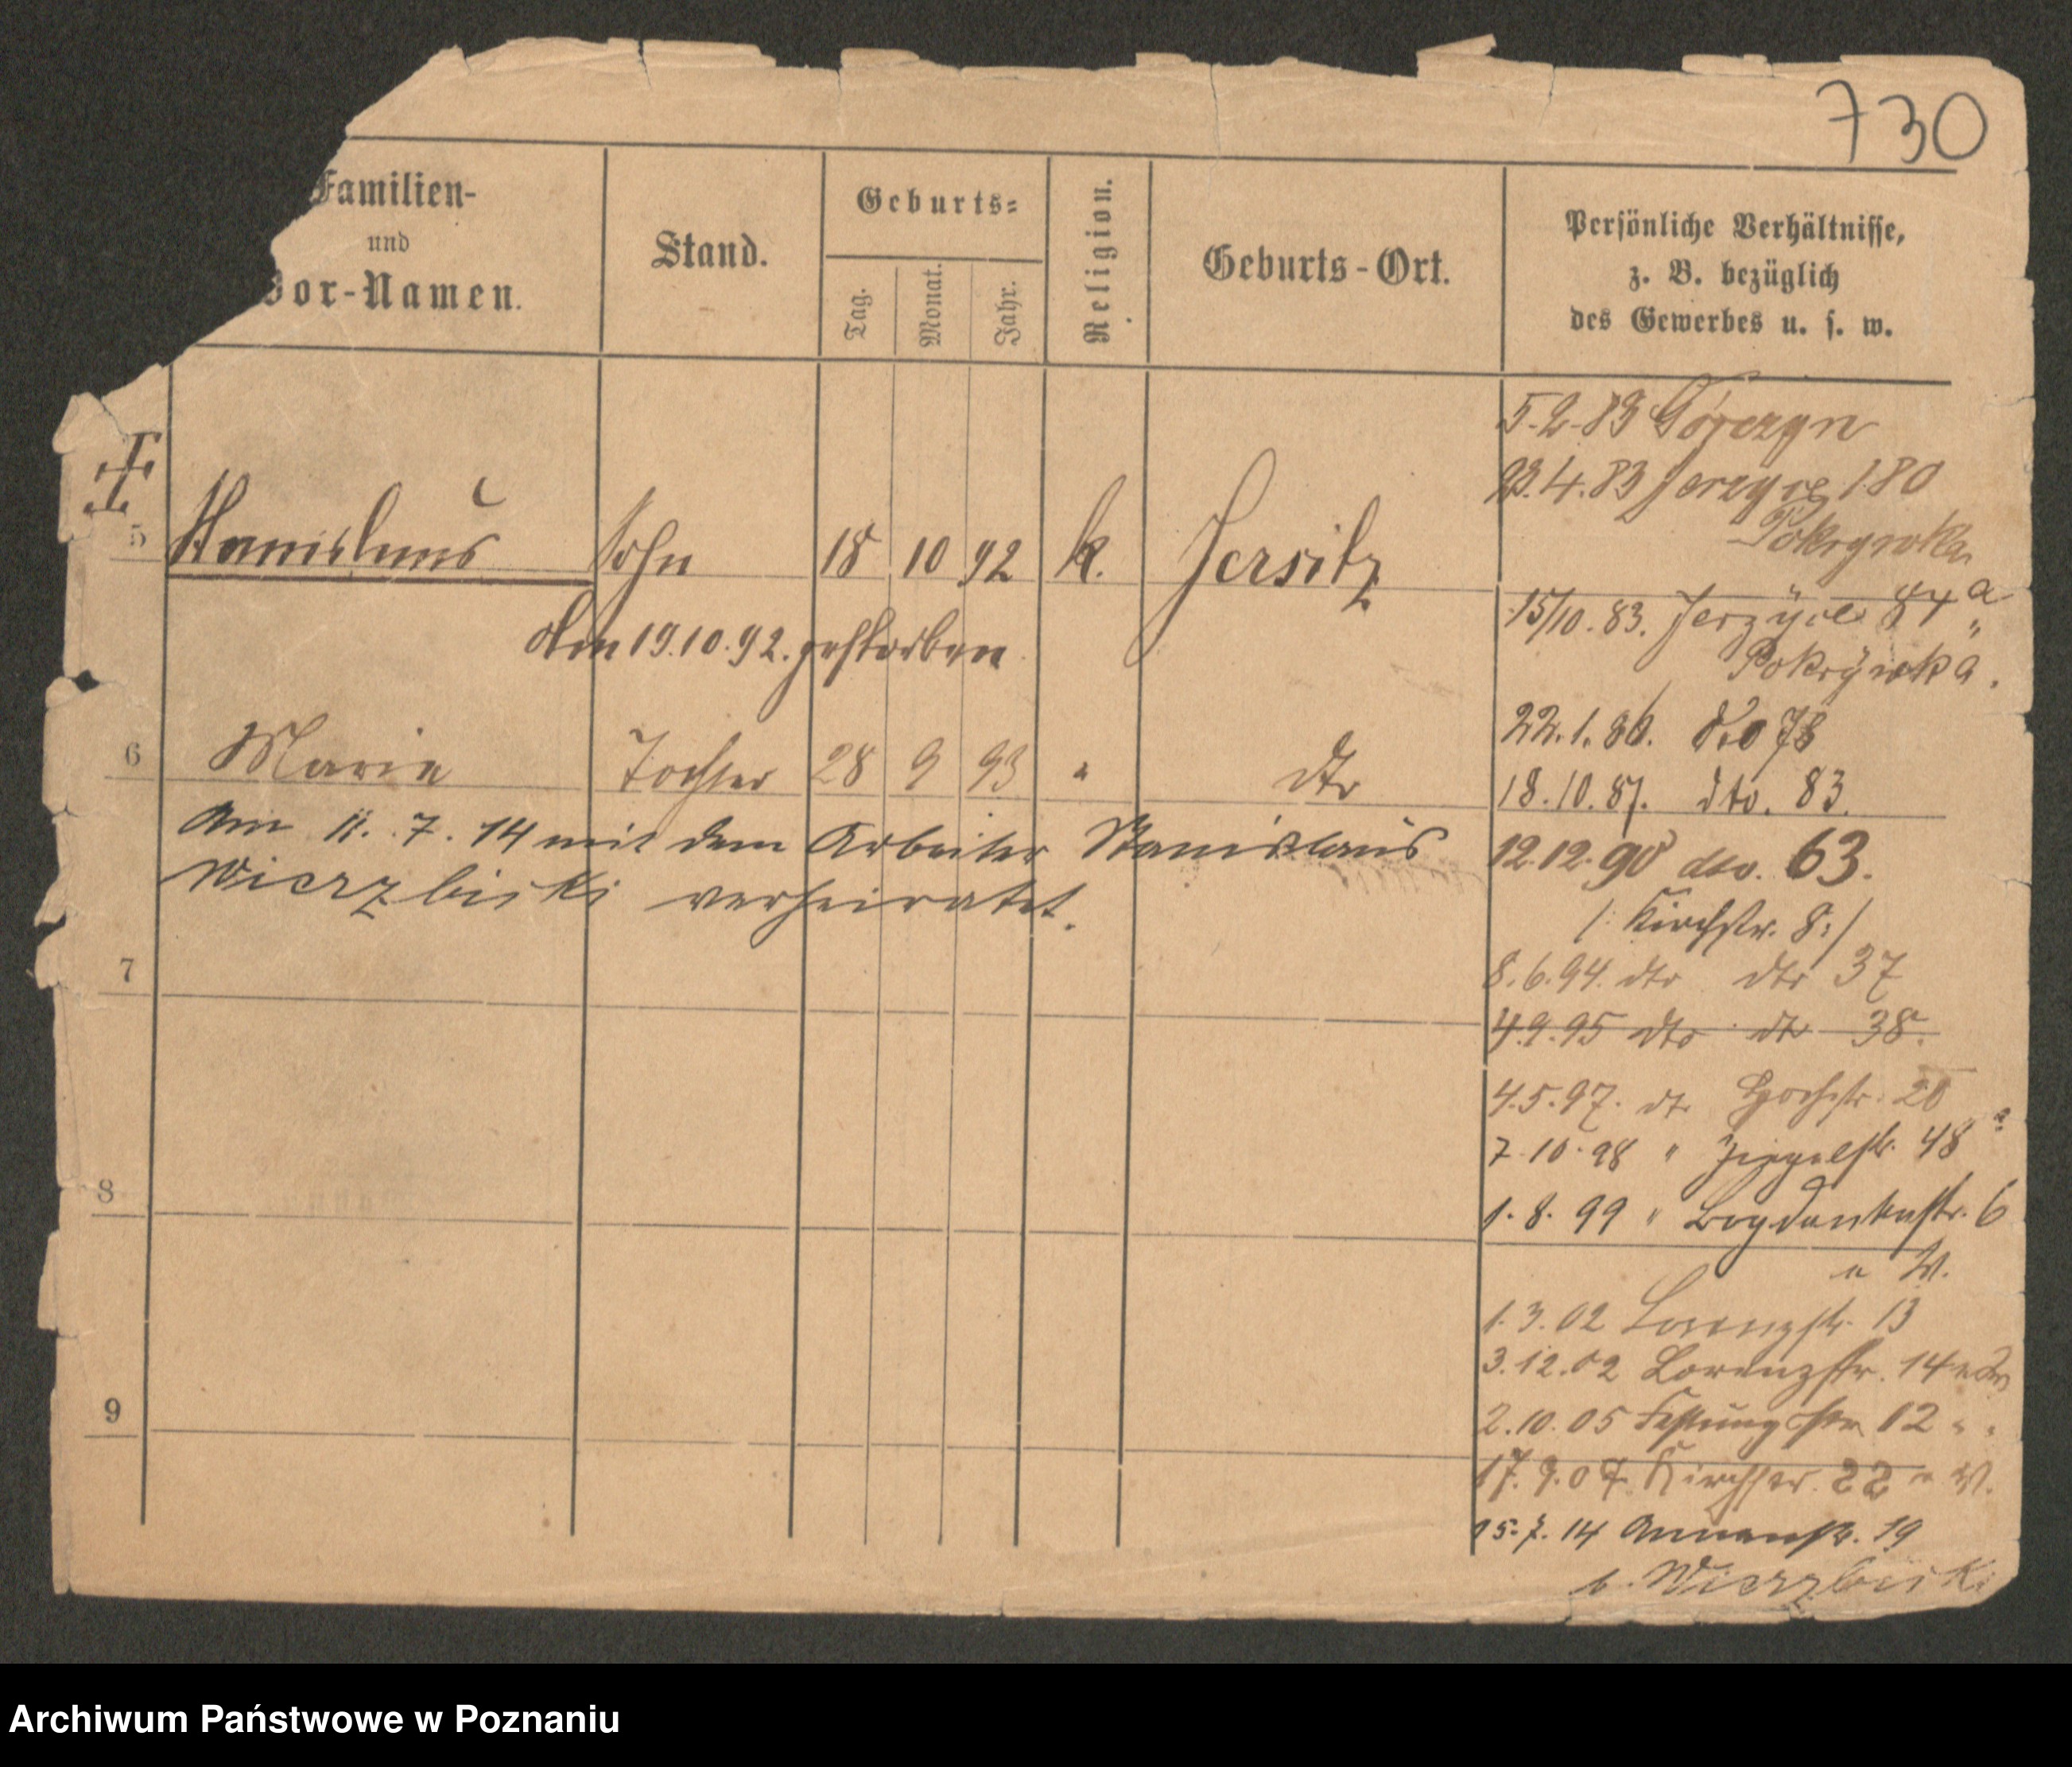 730
Familien-
und
Vor-Namen.
Stand.
Geburts-
Tag.
Monat.
Jahr.
Religion.
Geburts-Ort.
Persönliche Verhältnisse,
z. B. bezüglich
des Gewerbes u. s. w.
5 Stanislaus Sohn 18 10 92 k. Jersitz
Am 19.10.92. gestorben
6 Marie Tochter 28 9 93 " dto
Am 11. 7. 14 mit dem Arbeiter Stanislaus
Wierzbicki verheiratet.
7
8
9
5.2.83 Górczyn
23.4.83 Jerzyce 180
Pokrywka
15/10.83. Jerzyce 84a
Pokrywka.
22.1.86. dto 78
18.10.87. dto. 83.
12.12.90 dto. 63.
/: Kirchstr. 8:/
8.6.94. dto dto 37
4.9.95 dto dto 38.
4.5.97. dt. Hochstr. 20
7.10.98 " Ziegelstr. 48a
1.8.99 " Bogdankastr. 6
1.3.02 Lorenzstr. 13
3.12.02 Lorenzstr. 14
2.10.05 Festungstr 12 " "
17.9.07 Kirchstr. 22
15.7.14 Annenstr. 19
b. Wierzbicki
Archiwum Państwowe w Poznaniu